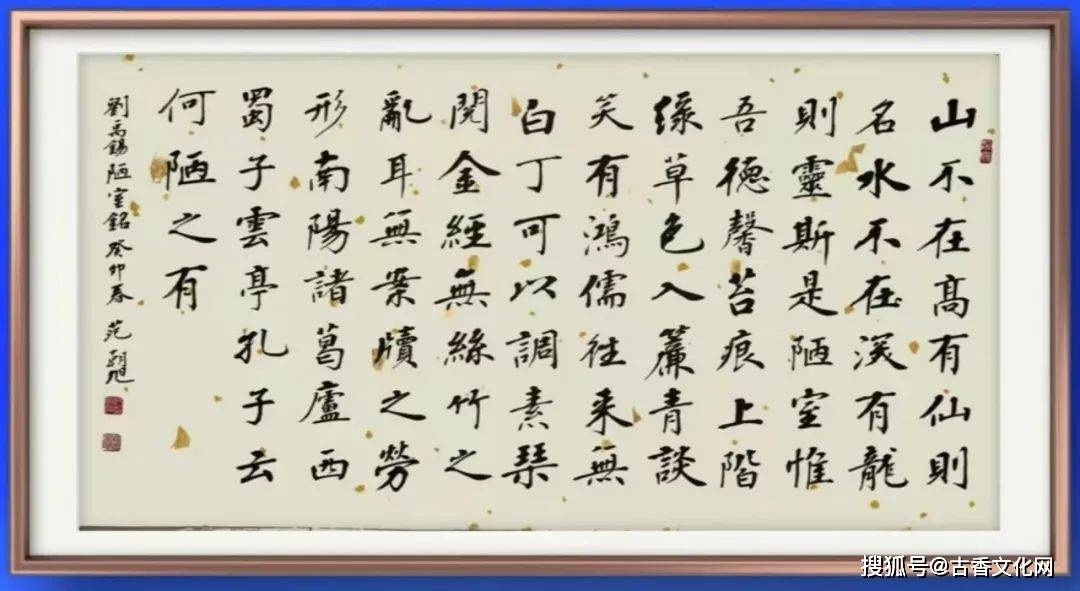 山不在高有仙則
名水不在深有龍
則靈斯是陋室惟
吾德馨苔痕上階
綠草色入簾青談
笑有鴻儒往来無
白丁可以調素琴
閱金經無絲竹之
亂耳無案牘之勞
形南陽諸葛廬西
蜀子雲亭孔子云
何陋之有
劉禹錫陋室銘癸卯春范朝旭
搜狐号@古香文化网